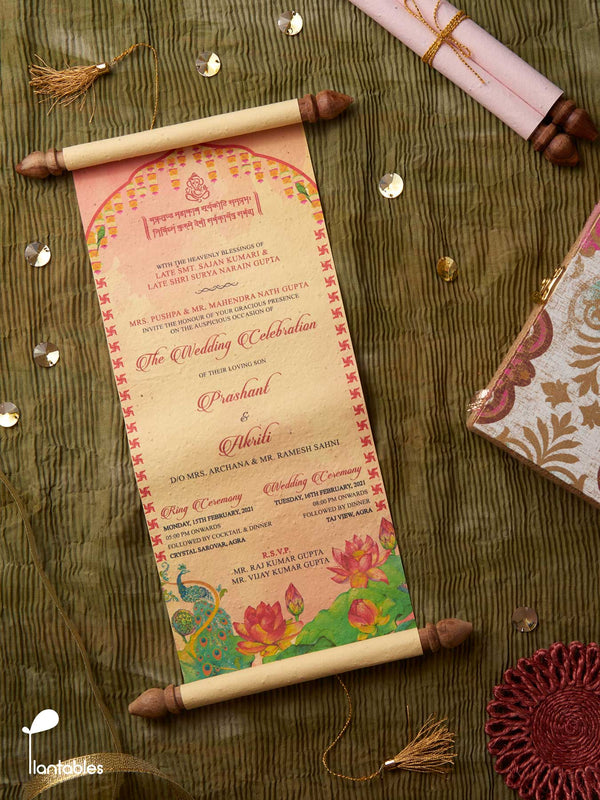 WITH THE HEAVENLY BLESSINGS OF
LATE SMT. SAJAN KUMARI &
LATE SHRI SURYA NARAIN GUPTA
MRS. PUSHPA & MR. MAHENDRA NATH GUPTA
INVITE THE HONOUR OF YOUR GRACIOUS PRESENCE
ON THE AUSPICIOUS OCCASION OF
The Wedding Celebration
OF THEIR LOVING SON
Prashant
&
Akriti
D/O MRS. ARCHANA & MR. RAMESH SAHNI
Ring Ceremony
MONDAY, 15TH FEBRUARY, 2021
05:00 PM ONWARDS
FOLLOWED BY COCKTAIL & DINNER
CRYSTAL SAROVAR, AGRA
Wedding Ceremony
TUESDAY, 16TH FEBRUARY, 2021
08:00 PM ONWARDS
FOLLOWED BY DINNER
TAJ VIEW, AGRA
R.S.V.P.
MR. RAJ KUMAR GUPTA
MR. VIJAY KUMAR GUPTA
plantables